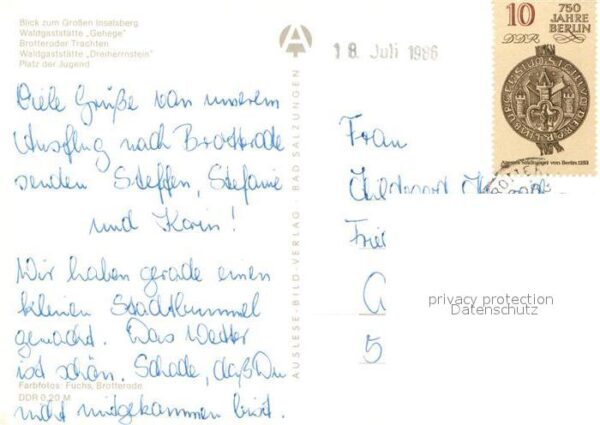 Blick zum Großen Inselsberg
Waldgaststätte „Gehege"
Brotteroder Trachten
Waldgaststätte „Dreiherrnstein"
Platz der Jugend
Viele Grüße von unserem
Ausflug nach Brotterode
senden Steffen, Stefanie
und Karin!
Wir haben gerade einen
kleinen Stadtbummel
gemacht. Das Wetter
ist schön. Schade, daß Du
nicht mitgekommen bist.
Farbfotos: Fuchs, Brotterode
DDR 0,20 M
AUSLESE-BILD-VERLAG · BAD SALZUNGEN
18. Juli 1986
10
750
JAHRE
BERLIN
DDR
Ältestes Stadtsiegel von Berlin 1253
Frau
5
privacy protection
Datenschutz